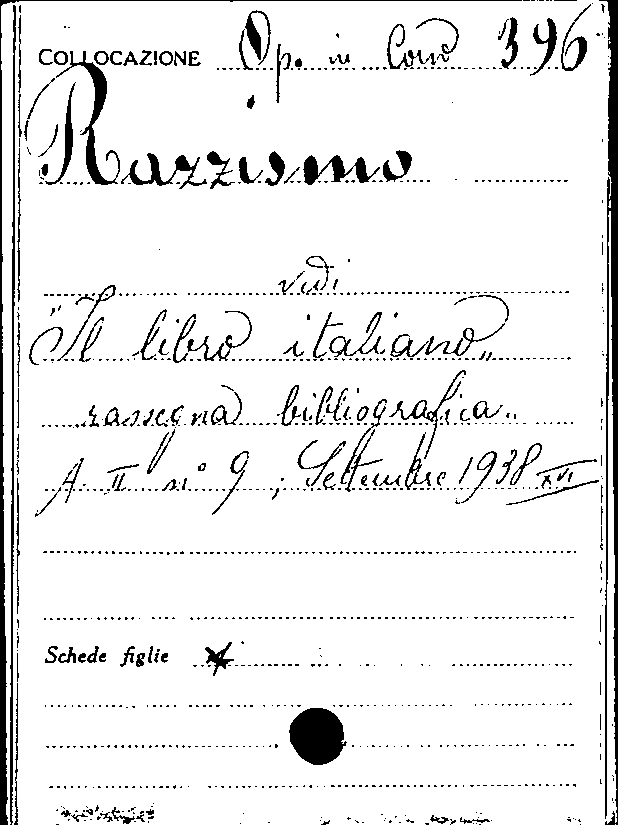 COLLOCAZIONE Op. in Corso 396
Razzismo
vedi
"Il libro italiano„
rassegna bibliografica..
A. II n° 9; Settembre 1938 XVI
Schede figlie